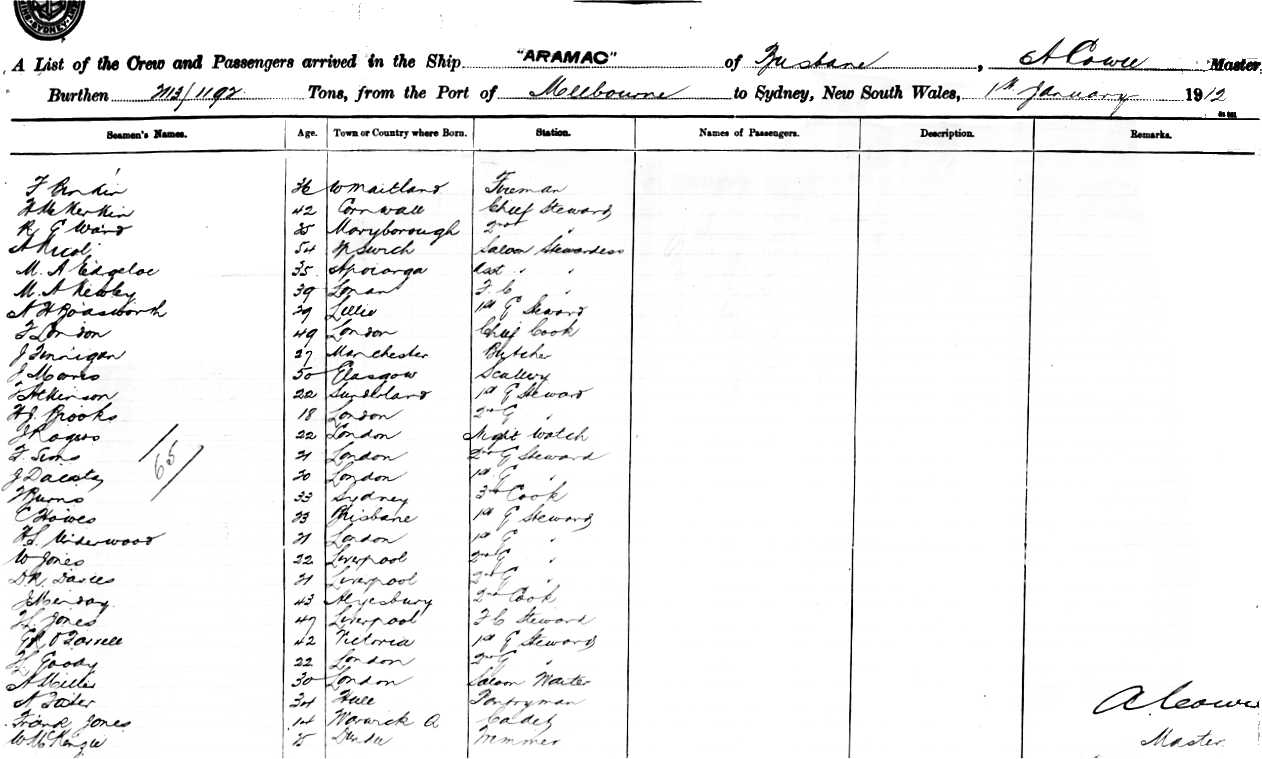 SYDNEY
A List of the Crew and Passengers arrived in the Ship "ARAMAC" of Brisbane, A Cowie Master
Burthen 2113/1192 Tons, from the Port of Melbourne to Sydney, New South Wales, 1st January 1912
Seamen's Names. Age. Town or Country where Born. Station. Names of Passengers. Description. Remarks.
36 W Maitland Fireman
42 Cornwall Chief Steward
R G Ward 25 Maryborough 2nd "
A Nicol 54 Ipswich Saloon Stewardess
M. A Edgeloe 35 "  "
M. A Newby 39 F. C "
N H Bodsworth 29 1st G Steward
F London 49 London Chief Cook
J Finnigan 27 Manchester Butcher
J Morris 50 Glasgow Scullery
Atkinson 22 Sunderland 1st G Steward
H J. Brooks 18 London 2nd G "
J Rogers 22 London Night Watch
F. Sims 21 London 2nd G Steward
65
J Dacosta 20 London 1st G "
Burns 33 Sydney 3rd Cook
C Howes 23 Brisbane 1st G Steward
H S. Underwood 21 London 1st G "
W Jones 22 Liverpool 2nd G "
D R Davies 21 Liverpool 2nd G "
J Merday 43 Alyesbury 2nd Cook
Jones 47 Liverpool F C Steward
O'Farrell 42 Victoria 1st G Steward
Goody 22 London 2nd G "
A Miller 30 London Saloon Waiter
34 Hull Pantryman
A Cowie
Frank Jones 14 Warwick Q Cadet
W McKenzie 25 Dundee Trimmer
Master